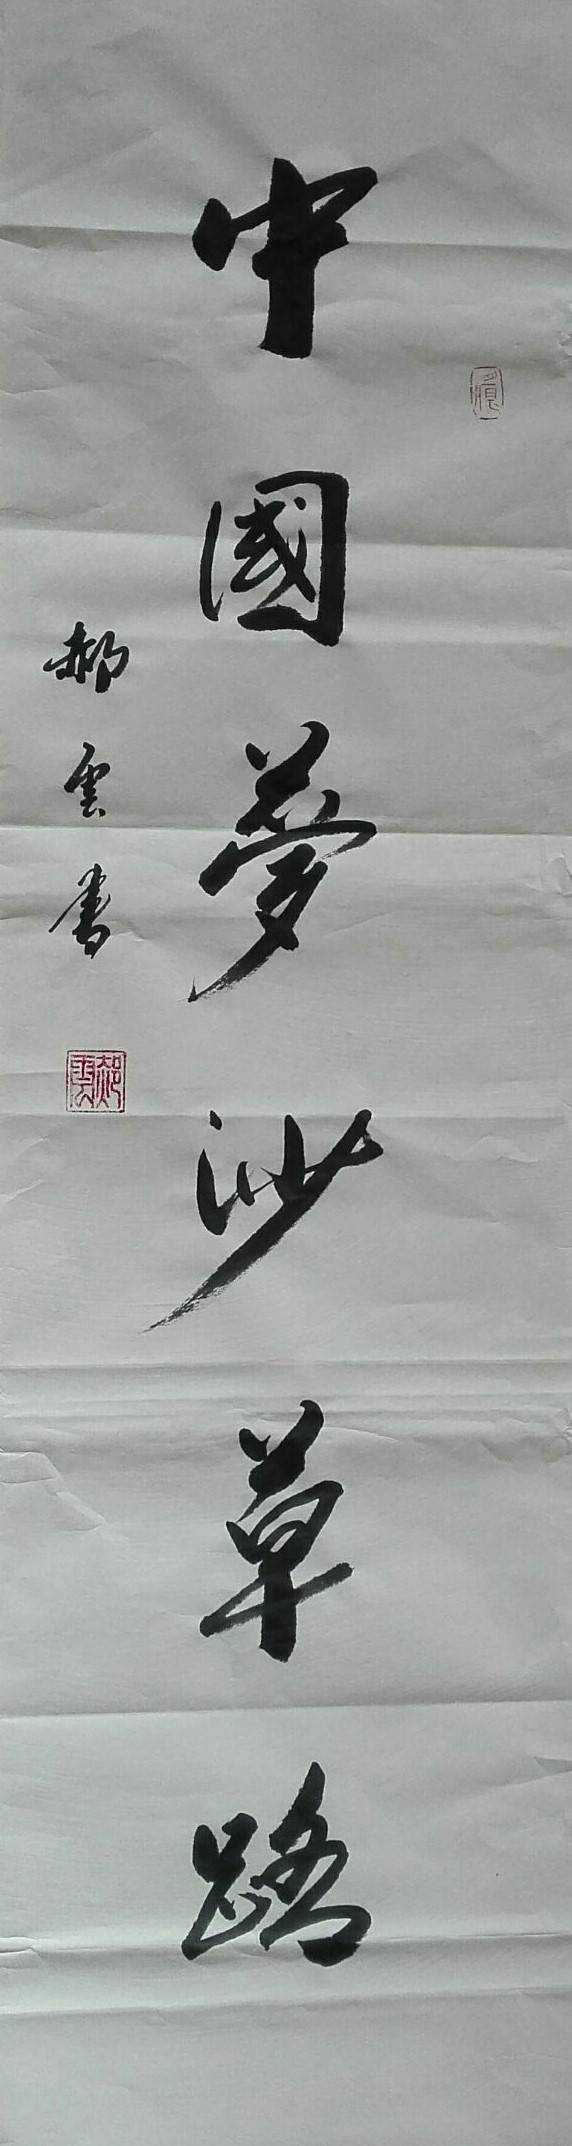 中國夢沙草路
郝雲書
郝雲